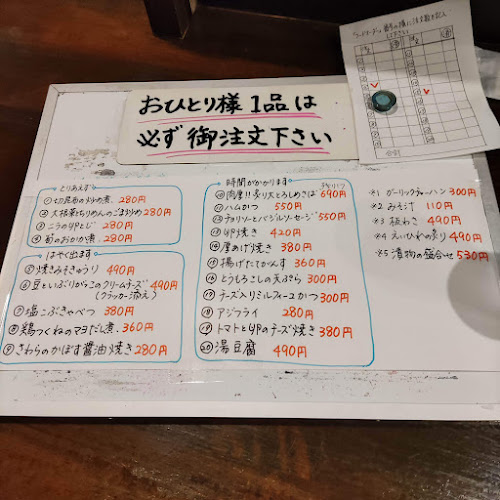 おひとり様1品は
必ず御注文下さい
とりあえず
① 切昆布の炒め煮. 280円
② 大根葉ちりめんのごま炒め280円
③ ニラの卵とじ 280円
④ 筍のおかか煮. 280円
はやく出ます
⑤ 焼きみそきゅうり 490円
⑥ 豆といぶりがっこのクリームチーズ 490円
(クラッカー添え)
⑦ 塩こぶきゃべつ 380円
⑧ 鶏つくねのマヨだし煮. 360円
⑨ さわらのかぼす醤油焼き 280円
時間がかかります
⑩ 肉厚!!炙り大とろしめさば 690円
⑪ ハムかつ 550円
⑫ チョリソーとバジルソーセージ 550円
⑬ 卵焼き 420円
⑭ 厚あげ焼き 380円
⑮ 揚げたてがんす 360円
⑯ とうもろこしの天ぷら 300円
⑰ チーズ入りミルフィーユかつ 300円
⑱ アジフライ 280円
⑲ トマトと卵のチーズ焼き 380円
⑳ 湯豆腐 490円
*1 ガーリックチャーハン 300円
*2 みそ汁 110円
*3 板わさ 490円
*4 えいひれの炙り 490円
*5 漬物の盛合せ 530円